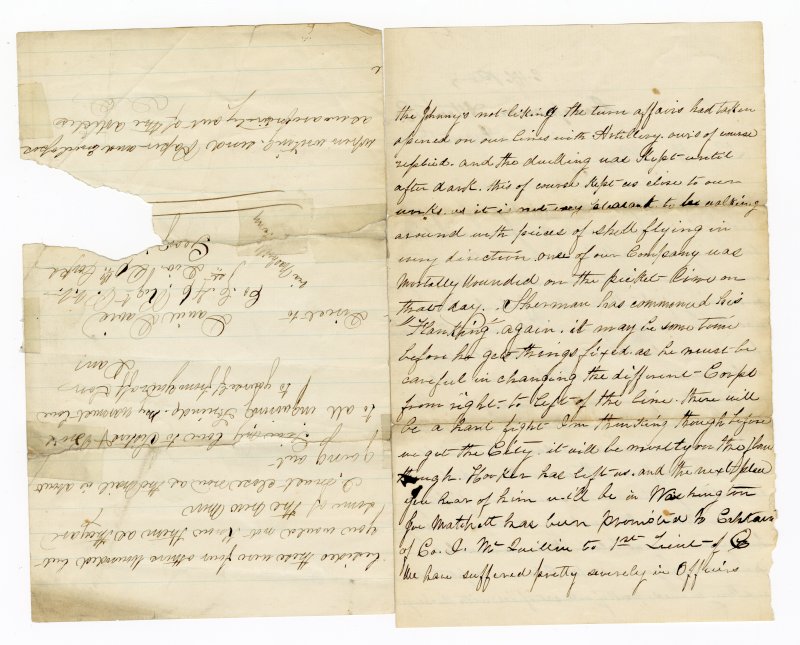 the Johnny's not liking the turn affairs had taken
opened on our lines with Artillery. ours of course
replied. and the duelling was Kept until
after dark. this of course Kept us close to our
works. as it is not very pleasant to be walking
around with pieces of shell flying in
every direction. one of our Company was
Mortally Wounded on the picket line on
that day. Sherman has commenced his
"Flanking" again. it may be some time
before he gets things fixed. as he must be
careful in changing the different Corps
from right to left of the line. there will
be a hard fight I'm thinking though before
we get the City. it will be mostly on the
though. Hooker has left us. and the next
you hear of him will be in Washington
Joe Matchett has been promoted to Captain
of Co. I. McQuillin to 1st Lieut of
We have suffered pretty severely in Officers
besides these were four others wounded but
you would not know them as they are
some of the new ones
I must close now as the mail is about
going out
Give my love to
to all inquiring friends. my warmest love
to yourself from your
Dan
Direct to
Daniel
Co.
1st Div. 20th
Geo
via Nashville
When writing send Paper and Envelopes
as we are entirely out of the articles
D